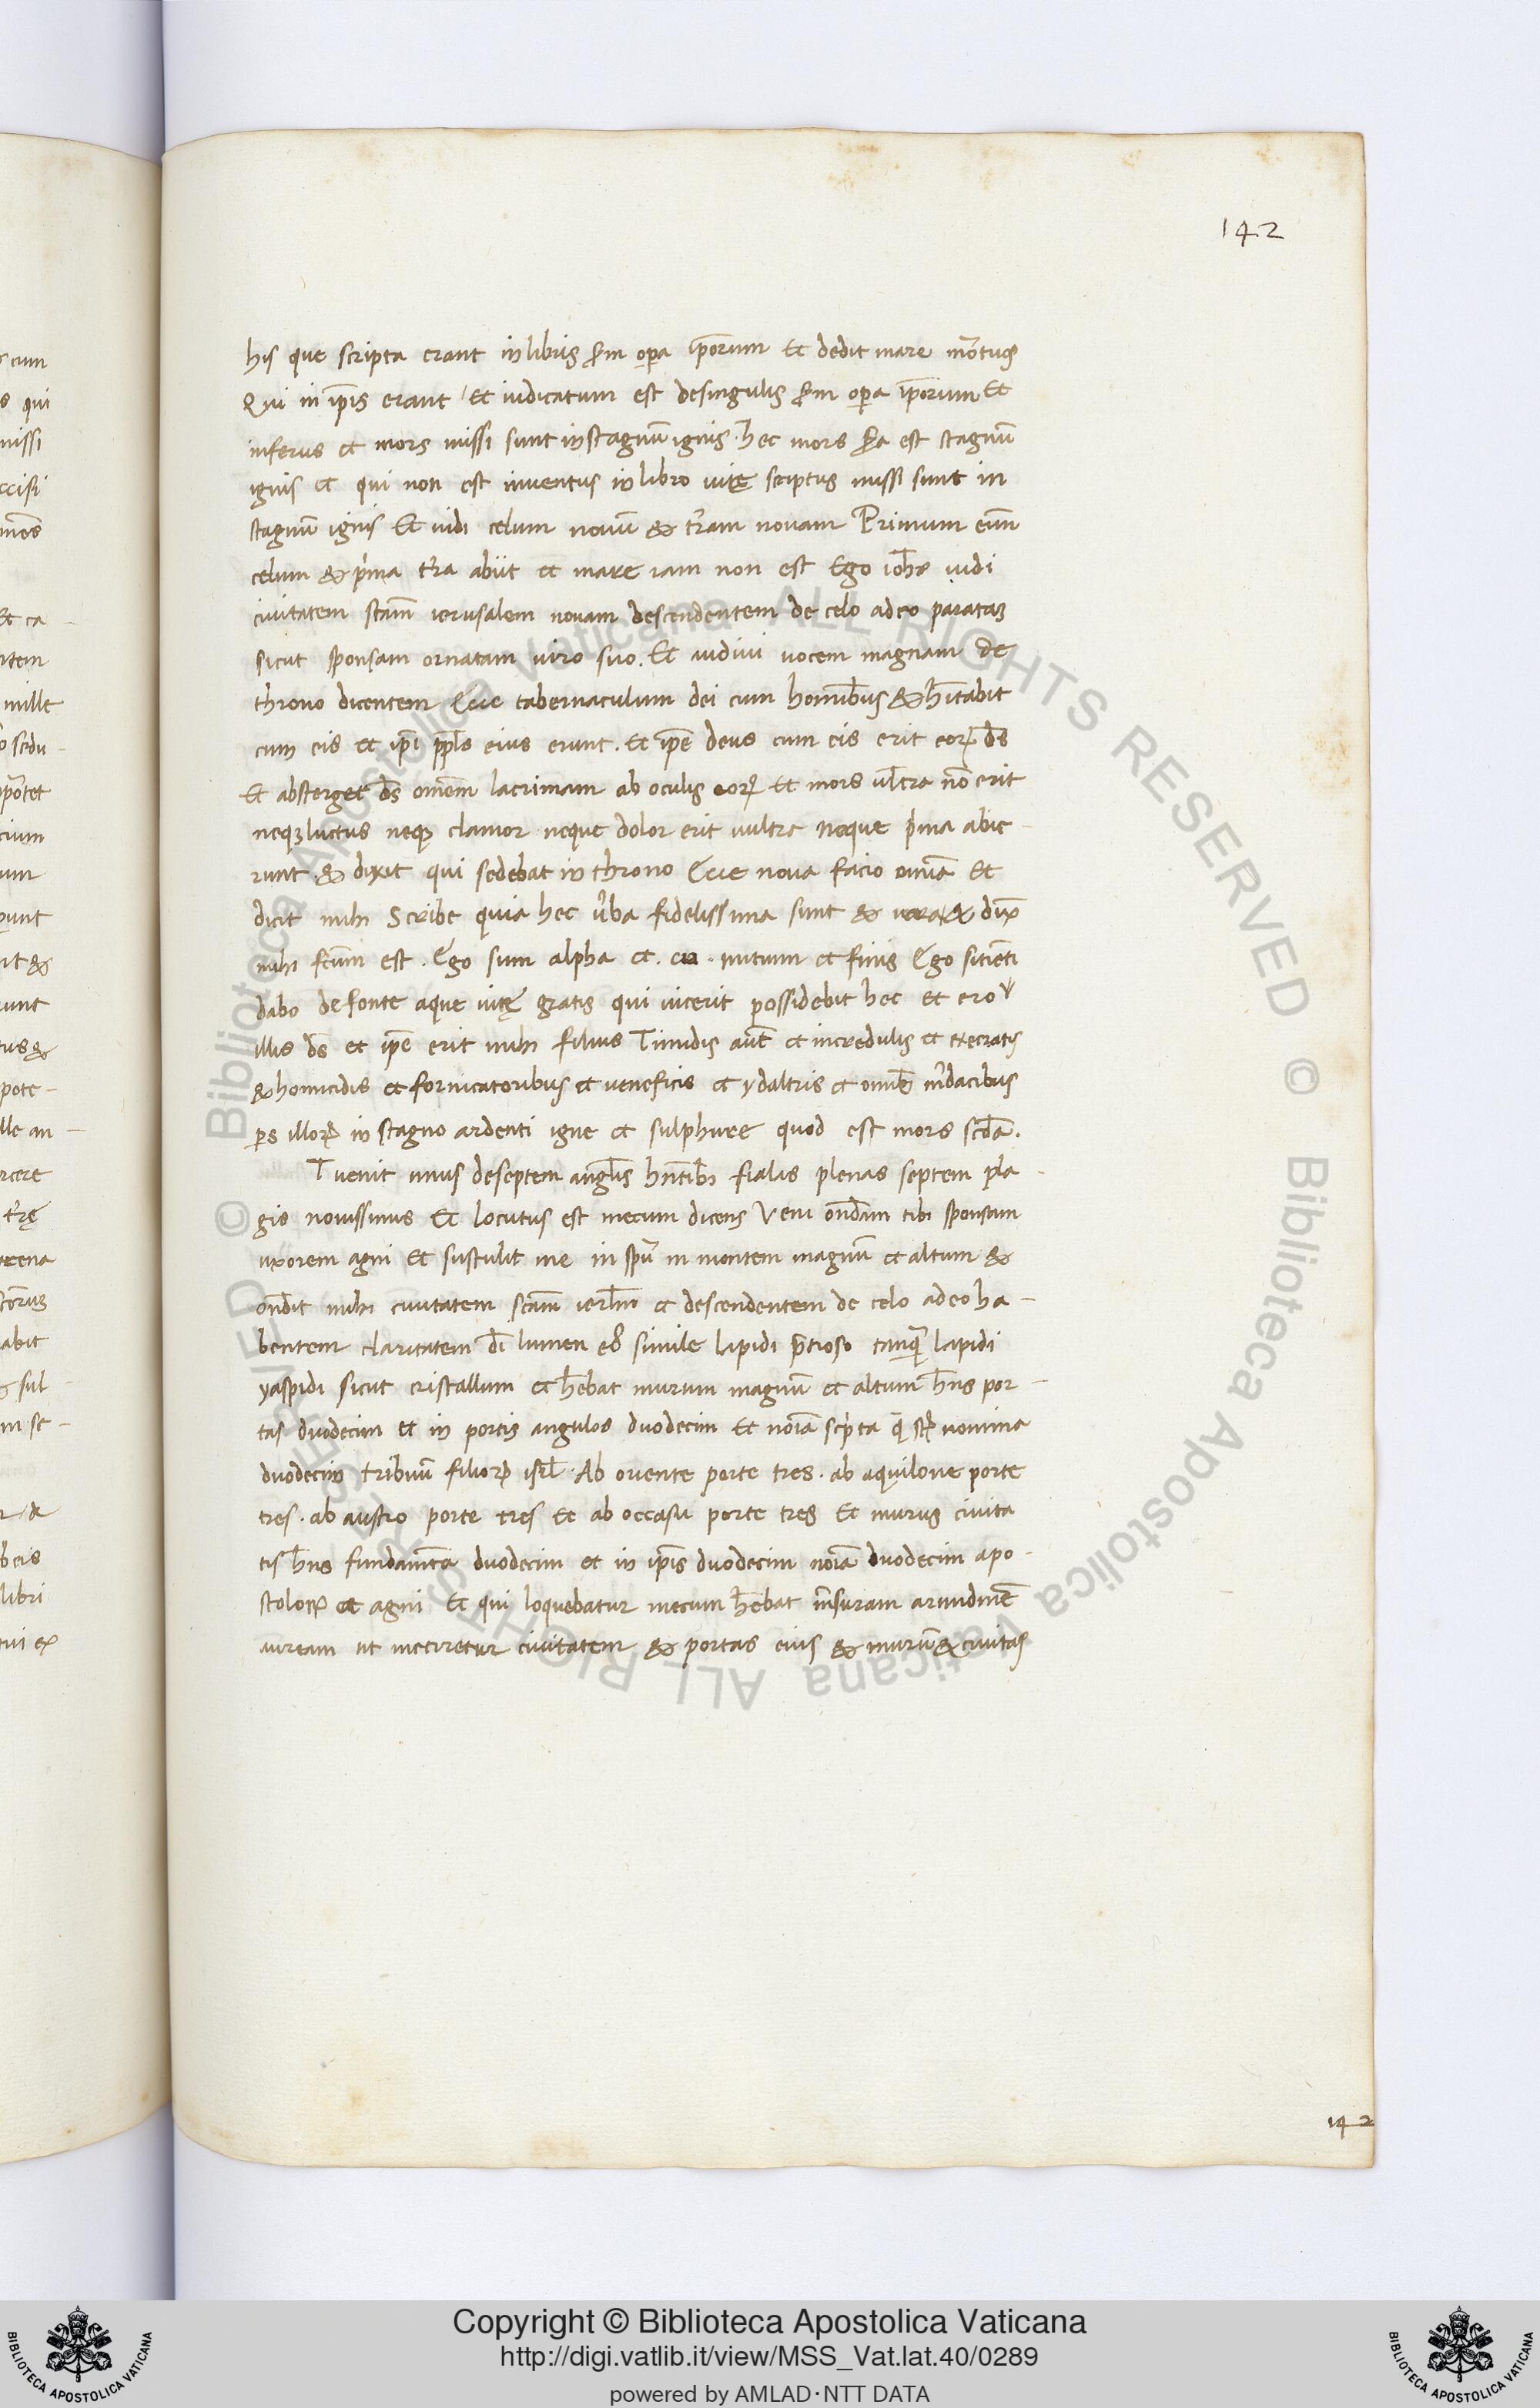 142
his que scripta erant in libris s̄m oꝑa ip̄orum Et dedit mare mortuos
Qui in ip̄is erant Et iudicatum est de singulis s̄m oꝑa ip̄orum Et
inferus et mors missi sunt in stagnū ignis. hec mors est stagnū
ignis et qui non est inventus in libro vitę scriptus missi sunt in
stagnū ignis Et vidi celum novū & t̄ram novam Primum enī
celum & p̄ma t̄ra abiit et mare iam non est Ego ioh̄s vidi
civitatem sc̄am ierusalem novam descendentem de celo a deo paratā
sicut sponsam ornatam viro suo. Et audivi vocem magnam de
throno dicentem Ecce tabernaculum dei cum hominib̄us & h̄itabit
cum eis et ip̄i pp̄ls eius erunt. Et ip̄e deus cum eis erit eoꝝ d̄s
Et absterget d̄s om̄em lacrimam ab oculis eoꝝ Et mors ult̄ra nō erit
neqꝫ luctus neqꝫ clamor neque dolor erit vultra neque p̄ma abie-
runt. & dixit qui sedebat in throno Ecce nova facio om̄ia Et
dicit mihi Scribe quia hec v̄ba fidelissima sunt & vera & dix̄
mihi fc̄um est. Ego sum alpha et. ω. initium et finis Ego sitiēti
dabo de fonte aque vitę gratis qui vicerit possidebit hec et ero
illis d̄s et ip̄e erit mihi filius Timidis aut̄ et incredulis et execratis
& homicidis et fornicatoribus et veneficis et ydaltris et om̄ib m̄dacibus
ꝑs illoꝝ in stagno ardenti igne et sulphure quod est mors sc̄da.
T venit unus de septem angl̄is hn̄tibꝫ fialas plenas septem pla-
gis novissimus Et locutus est mecum dicens Veni on̄dam tibi sponsam
uxorem agni Et sustulit me in sp̄u in montem magnū et altum &
on̄dit mihi civitatem sc̄am ierl̄m et descendentem de celo a deo ha-
bentem claritatem d̄i lumen simile lapidi p̄tioso tanq̄ lapidi
yaspidi sicut cristallum et h̄ebat murum magnū et altum h̄ns por-
tas duodecim et in portis angulos duodecim Et noīa sc̄pta q̄ nomina
duodecim tribuū filioꝝ isr̄l. Ab oriente porte tres. ab aquilone porte
tres. ab austro porte tres Et ab occasu porte tres Et murus civita
tis h̄ns fundam̄ta duodecim et in ip̄is duodecim noīa duodecim apo-
stoloꝝ et agni Et qui loquebatur mecum h̄ebat m̄suram arundinē
auream ut metiretur civitatem & portas eius & murū & civitas
142
Copyright © Biblioteca Apostolica Vaticana
http://digi.vatlib.it/view/MSS_Vat.lat.40/0289
powered by AMLAD·NTT DATA
BIBLIOTECA APOSTOLICA VATICANA
BIBLIOTECA APOSTOLICA VATICANA
© Biblioteca Apostolica Vaticana ALL RIGHTS RESERVED © Biblioteca Apostolica Vaticana ALL RIGHTS RESERVED